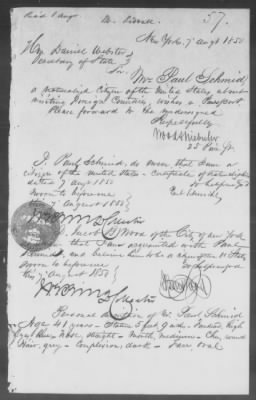 57.
New York, 7 Augt 1850
Hon Daniel Webster
Secretary of State
Sir
Mr Paul Schmid,
a naturalized Citizen of the United States about
visiting Foreign Countries, wishes a Passport
Please forward to the undersigned
Respectfully
25 Pine St
I, Paul Schmid, do swear that I am a
citizen of the United States - certificate of naturalization
dated 7 Augt 1850
Sworn to before me
this 7 August 1850
Paul Schmid
I, Jacob of the City of New York
swear that I am acquainted with Paul
Schmid, and believe him to be a citizen U States
Sworn to before me
this 7 August 1850
Personal of Mr Paul Schmid
Age 41 years - Stature 5 feet 9 inch - Forehead, high
Eyes, blue - Nose, straight - Mouth, medium - Chin, round
Hair, grey - Complexion, dark - Face oval